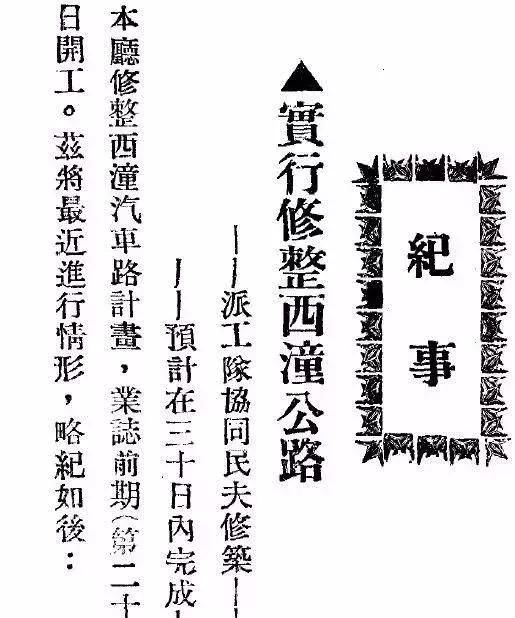 紀事
▲實行修整西潼公路
——派工隊協同民夫修築——
——預計在三十日內完成—
本廳修整西潼汽車路計畫，業誌前期（第二十
日開工。茲將最近進行情形，略紀如後：